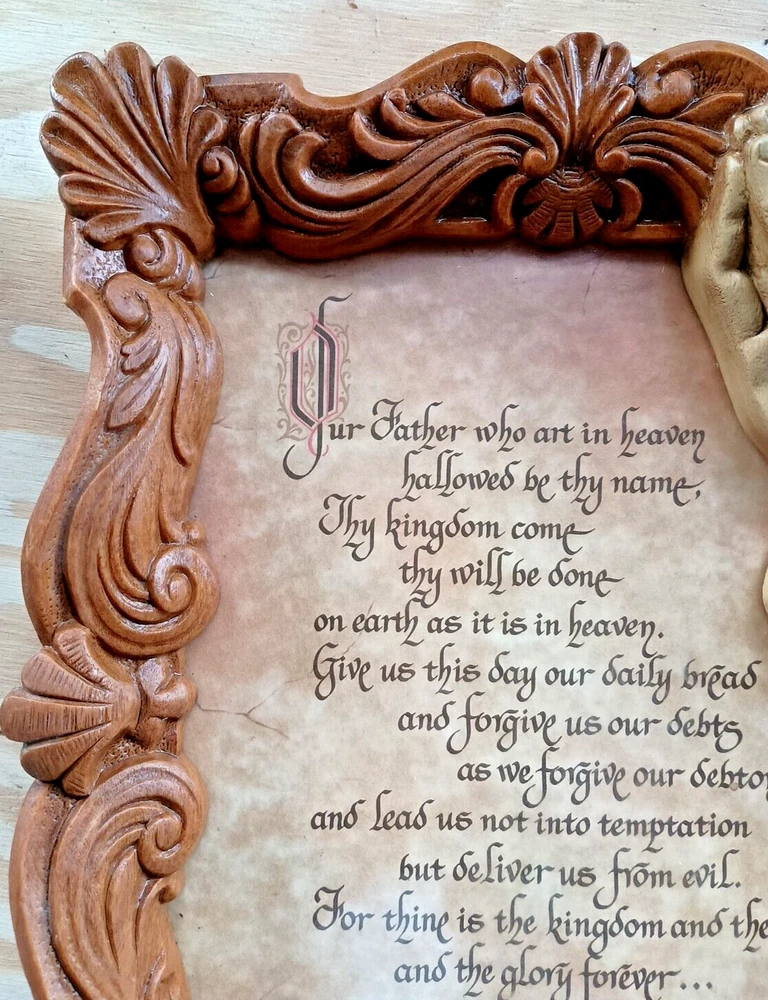 Our Father who art in heaven
hallowed be thy name,
Thy kingdom come
thy will be done
on earth as it is in heaven.
Give us this day our daily bread
and forgive us our debts
as we forgive our
and lead us not into temptation
but deliver us from evil.
For thine is the kingdom and the
and the glory forever...